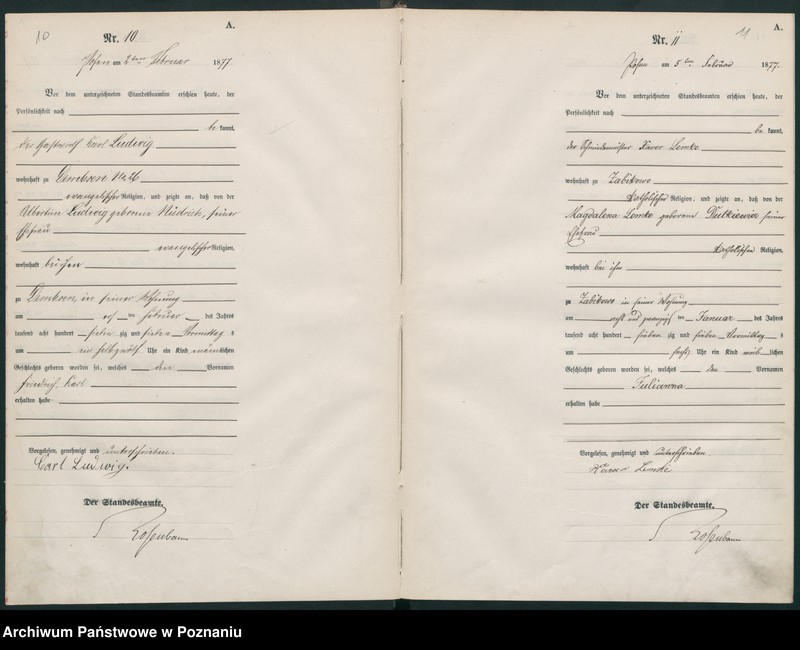 10
A.
Nr. 10
Posen am 2ten Februar 1877
Vor dem unterzeichneten Standesbeamten erschien heute, der
Persönlichkeit nach
be kannt,
der Gastwirth Carl Ludwig
wohnhaft zu
evangelischer Religion, und zeigte an, daß von der
Albertine Ludwig geborene Nüdrich, seiner
Ehefrau
evangelischer Religion,
wohnhaft bei ihm
zu in seiner Wohnung
am Februar des Jahres
tausend acht hundert sieben zig und sieben Vormittag s
um Uhr ein Kind männlichen
Geschlechts geboren worden sei, welches den Vornamen
Friedrich Carl
erhalten habe
Vorgelesen, genehmigt und unterschrieben.
Carl Ludwig.
Der Standesbeamte.
11
A.
Nr. 11
Posen am 5ten Februar 1877.
Vor dem unterzeichneten Standesbeamten erschien heute, der
Persönlichkeit nach
be kannt,
der Schmiedemeister Xaver Lemke
wohnhaft zu Zabikowo
katholischer Religion, und zeigte an, daß von der
Magdalena Lemke geborene Dutkiewicz seiner
Ehefrau
katholischer Religion,
wohnhaft bei ihm
zu Zabikowo in seiner Wohnung
am acht und zwanzig ten Januar des Jahres
tausend acht hundert sieben zig und sieben Vormittag s
um sechs Uhr ein Kind weib lichen
Geschlechts geboren worden sei, welches den Vornamen
Julianna
erhalten habe
Vorgelesen, genehmigt und unterschrieben
Xaver Lemke
Der Standesbeamte.
Archiwum Państwowe w Poznaniu